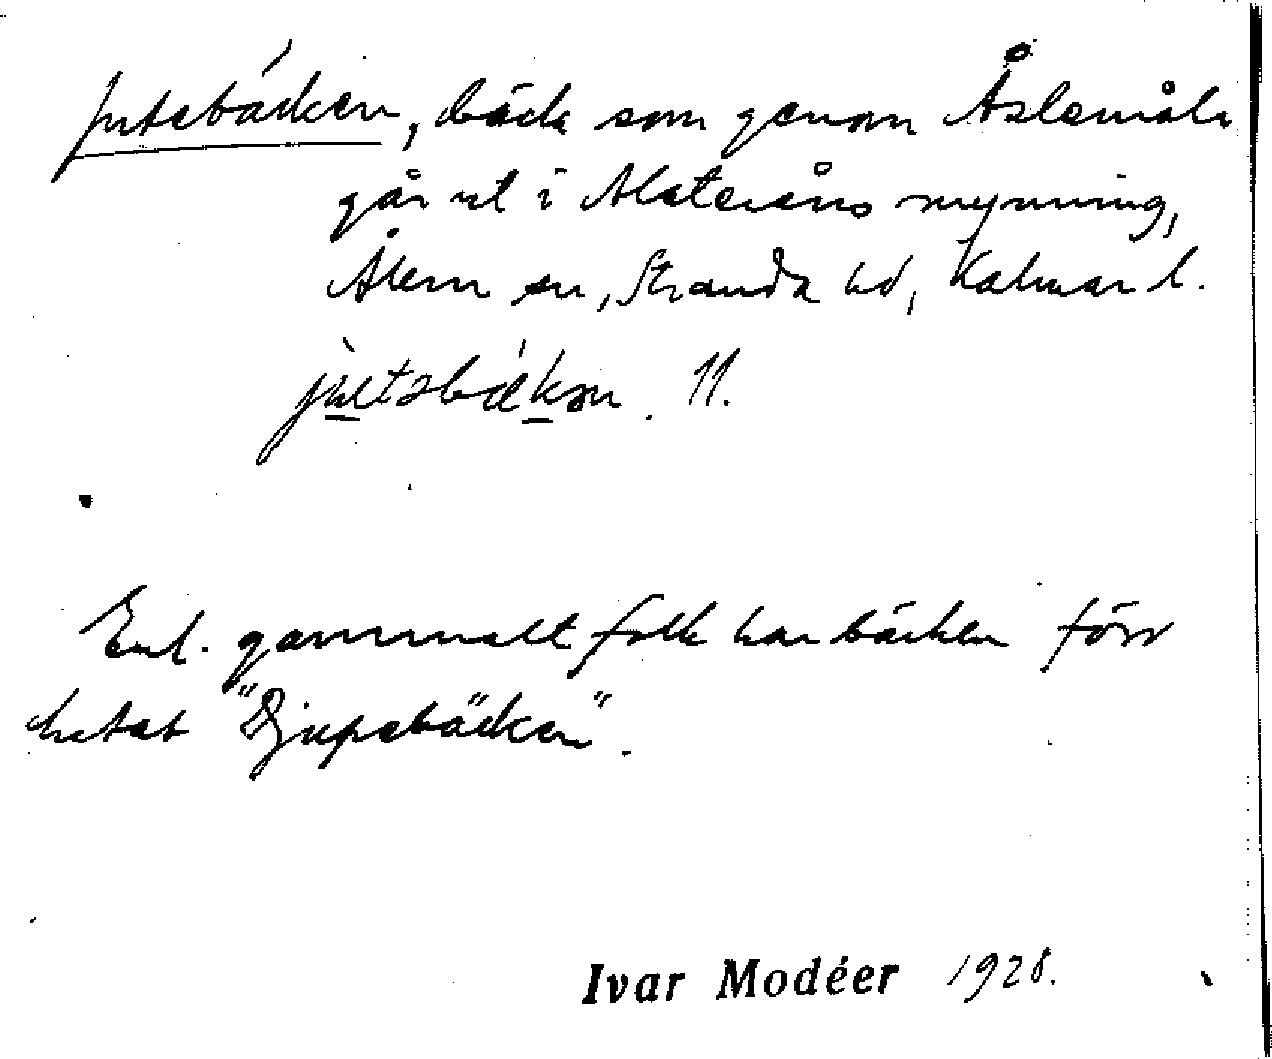 Jutebäcken, bäck som genom Åslemåla
går ut i Alsteråns mynning,
Ålem sn, Stranda hd, Kalmar l.
jùtəbǽkən. 11.
Enl. gammalt folk har bäcken förr
hetat "Djupebäcken".
Ivar Modéer 1928.